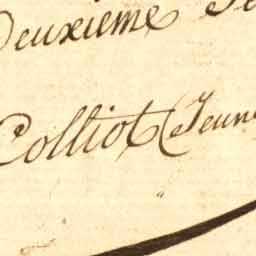 Deuxieme
Colliot (Jeun